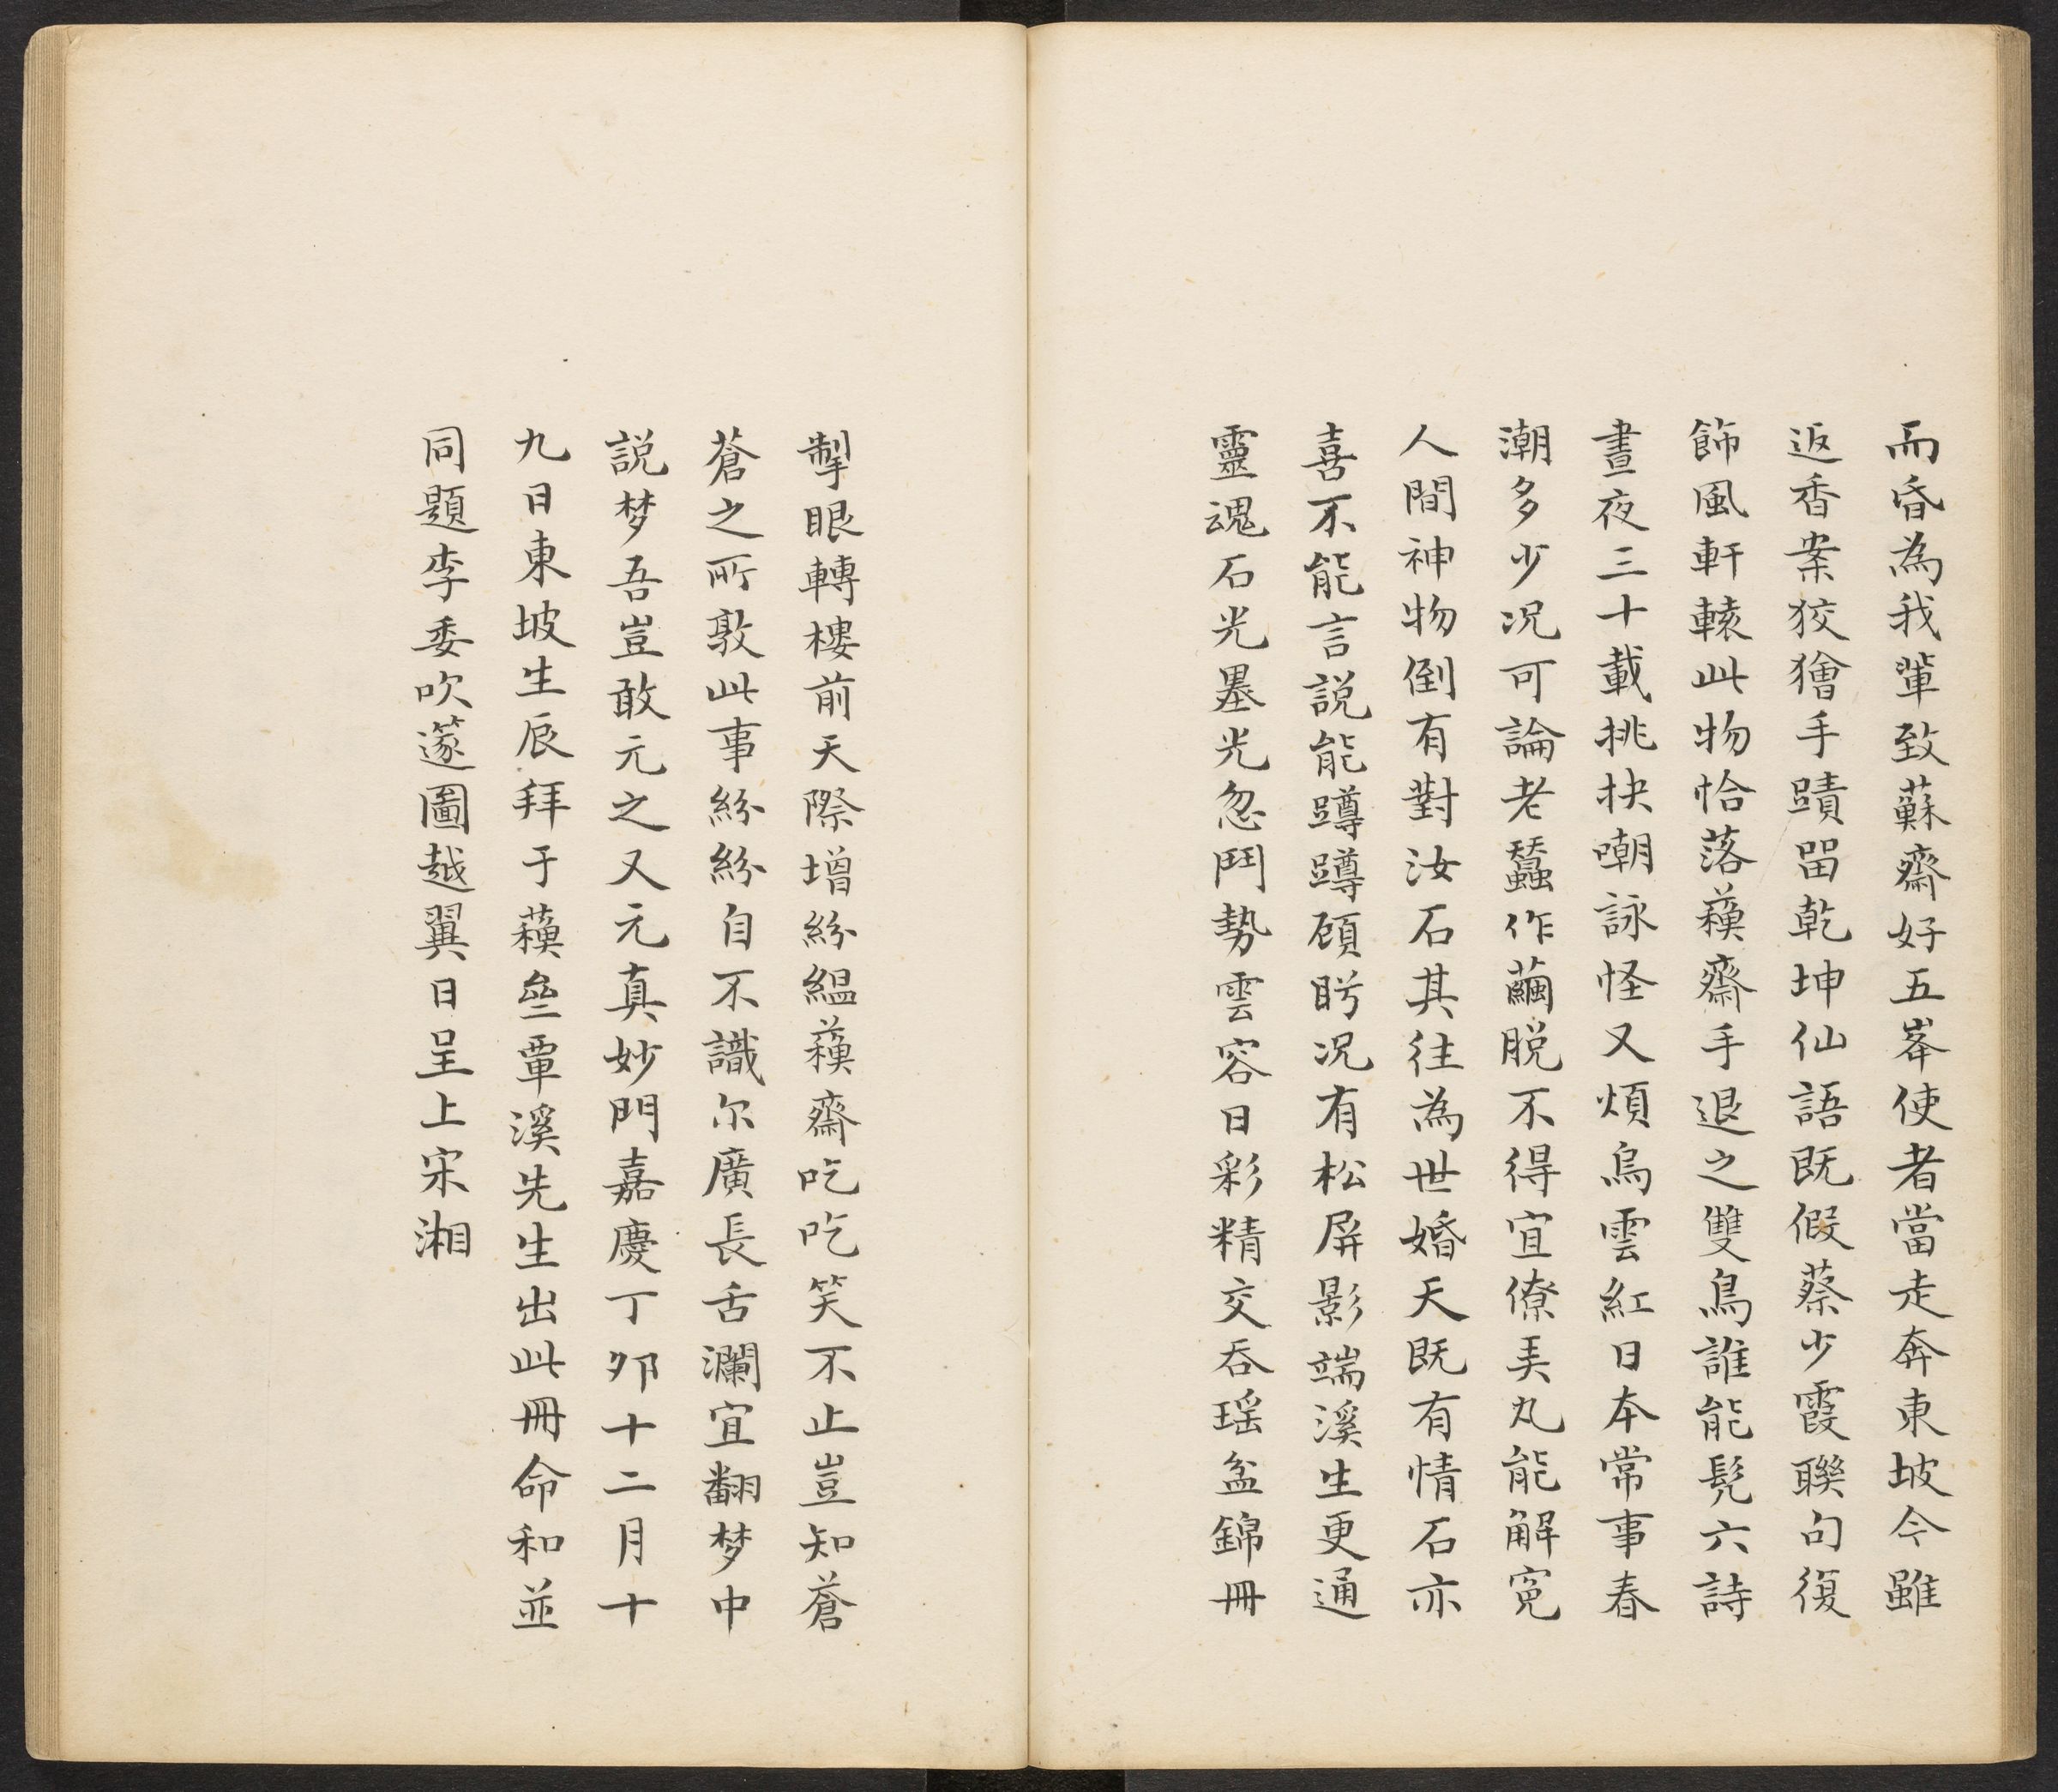 而昏為我輩致蘇齋好五峯使者當走奔東坡今雖
返香案狡獪手蹟留乾坤仙語既假蔡少霞聯句復
飾風軒轅此物恰落蘓齋手退之雙鳥誰能髡六詩
晝夜三十載挑抉嘲詠怪又煩烏雲紅日本常事春
潮多少況可論老蠶作繭脫不得宜僚弄丸能解寃
人間神物倒有對汝石其往為世婚天既有情石亦
喜不能言説能蹲蹲頋盻況有松屏影端溪生更通
靈魂石光墨光忽鬥勢雲容日彩精交吞瑶盆錦冊
掣眼轉樓前天際增紛緼蘓齋吃吃笑不止豈知蒼
蒼之所敦此事紛紛自不識尔廣長舌瀾宜翻梦中
説梦吾豈敢元之又元真妙門嘉慶丁夘十二月十
九日東坡生辰拜于蘓亝覃溪先生出此冊命和並
同題李委吹篴圖越翼日呈上宋湘